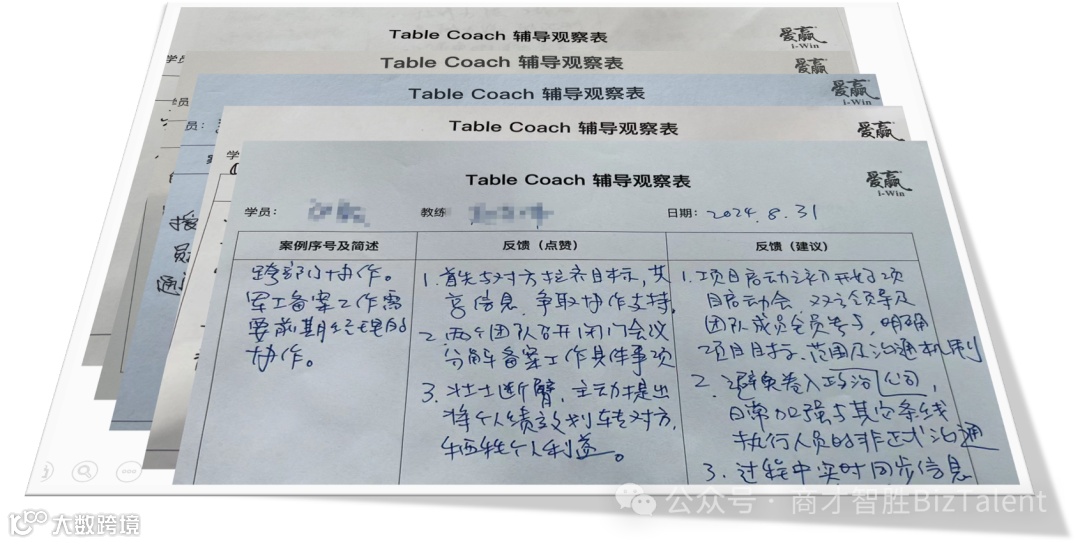 Table Coach 辅导观察表
爱赢
i-Win
学员
Table Coach 辅导观察表
爱赢
员
Table Coach 辅导观察表
爱赢
i-Win
员:
Table Coach 辅导观察表
爱赢
学
员
通
Table Coach 辅导观察表
爱赢
i-Win
学员:
教练
日期: 2024.8.31
案例序号及简述
反馈(点赞)
反馈(建议)
跨部门协作。
军工备案工作需
要前期经理的
协作。
1. 首先与对方拉齐目标,共
享信息、争取协作支持,
2. 两个团队召开闭门会议
分解备案工作具体事项
3. 壮士断臂,主动提出
将个人绩效划转对方,
牺牲个人利益。
1. 项目启动之初开好项
目启动会、双方领导及
团队成员全员参与,明确
项目目标、范围及沟通机制
2. 避免卷入政治公司,
日常加强与其它条线
执行人员的非正式沟通
3. 过程中实时同步信息
公众号·商才智胜BizTalent
大数跨境